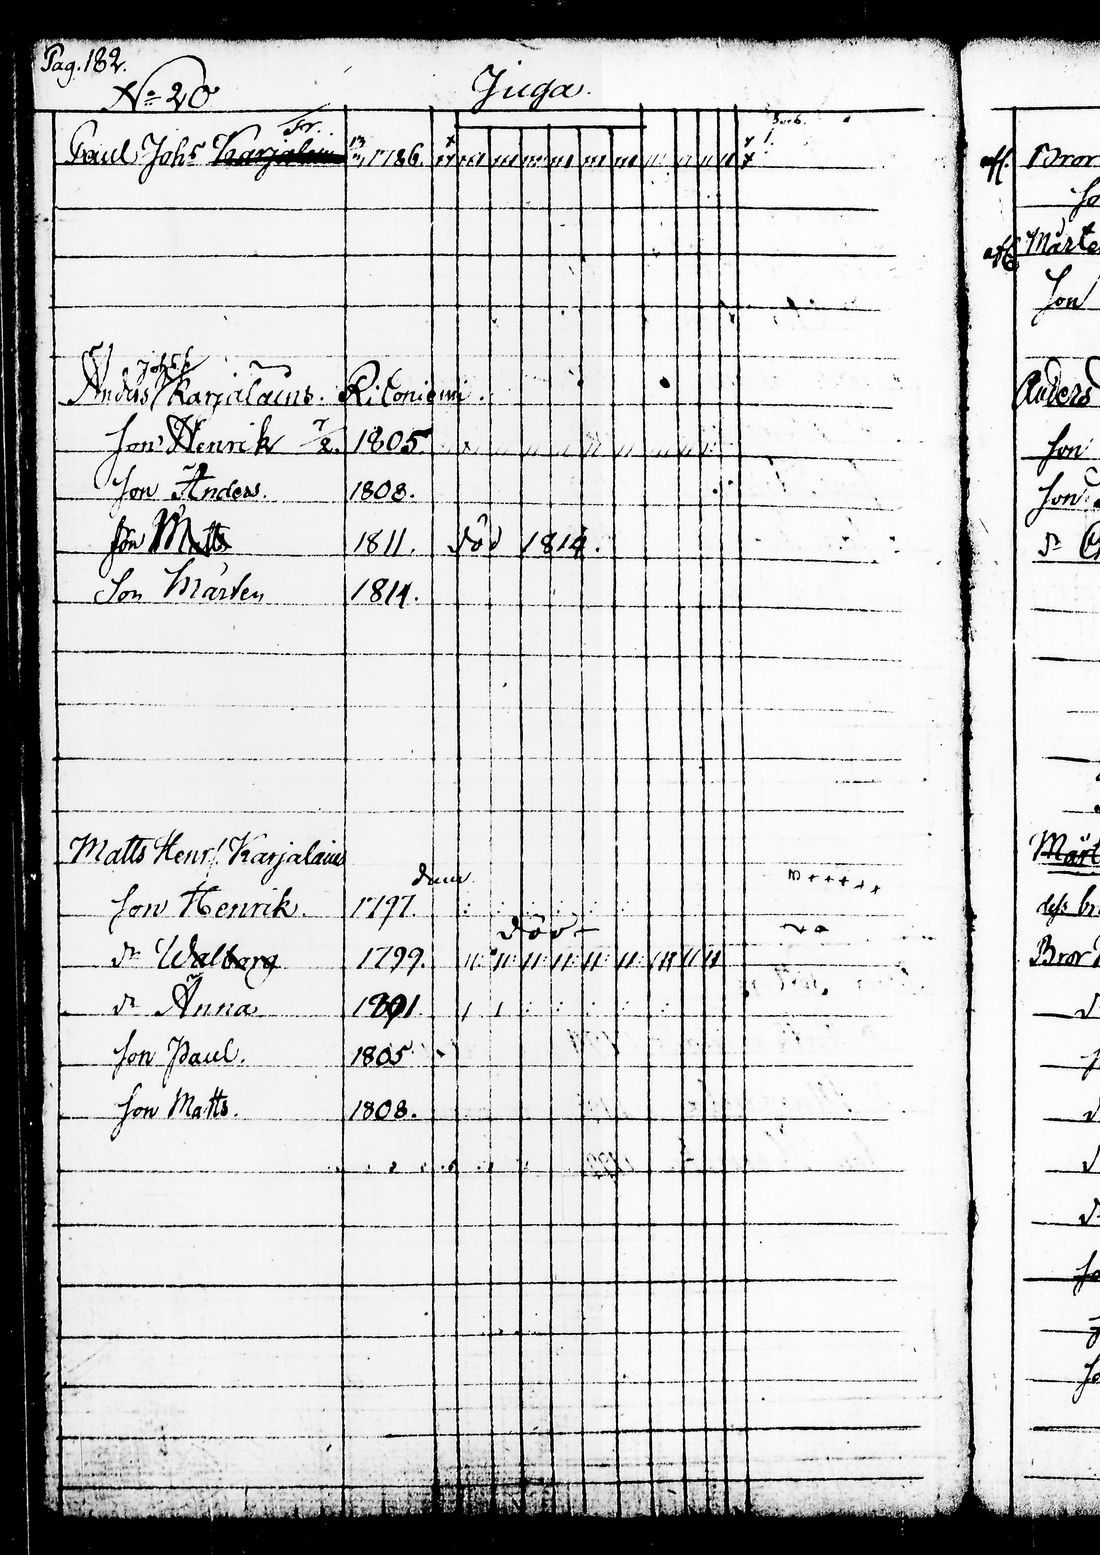 Pag. 182.
No 20
Juga.
Fr.
Paul Johs Karjalain 1786.
Johs
Anders Karjalains. Ritoniemi.
Son Henrik 7/2. 1805.
Son Anders. 1808.
Son Matts 1811. död 1814.
Son Mårten 1814.
Matts Henr. Karjalain
Son Henrik. 1797.
död
dr Walborg 1799.
dr Anna 1801
Son Paul. 1805
Son Matts. 1808.
aff. Bror
aff Mårte
Son
Anders
Son
Son
dr
Märt
Bror